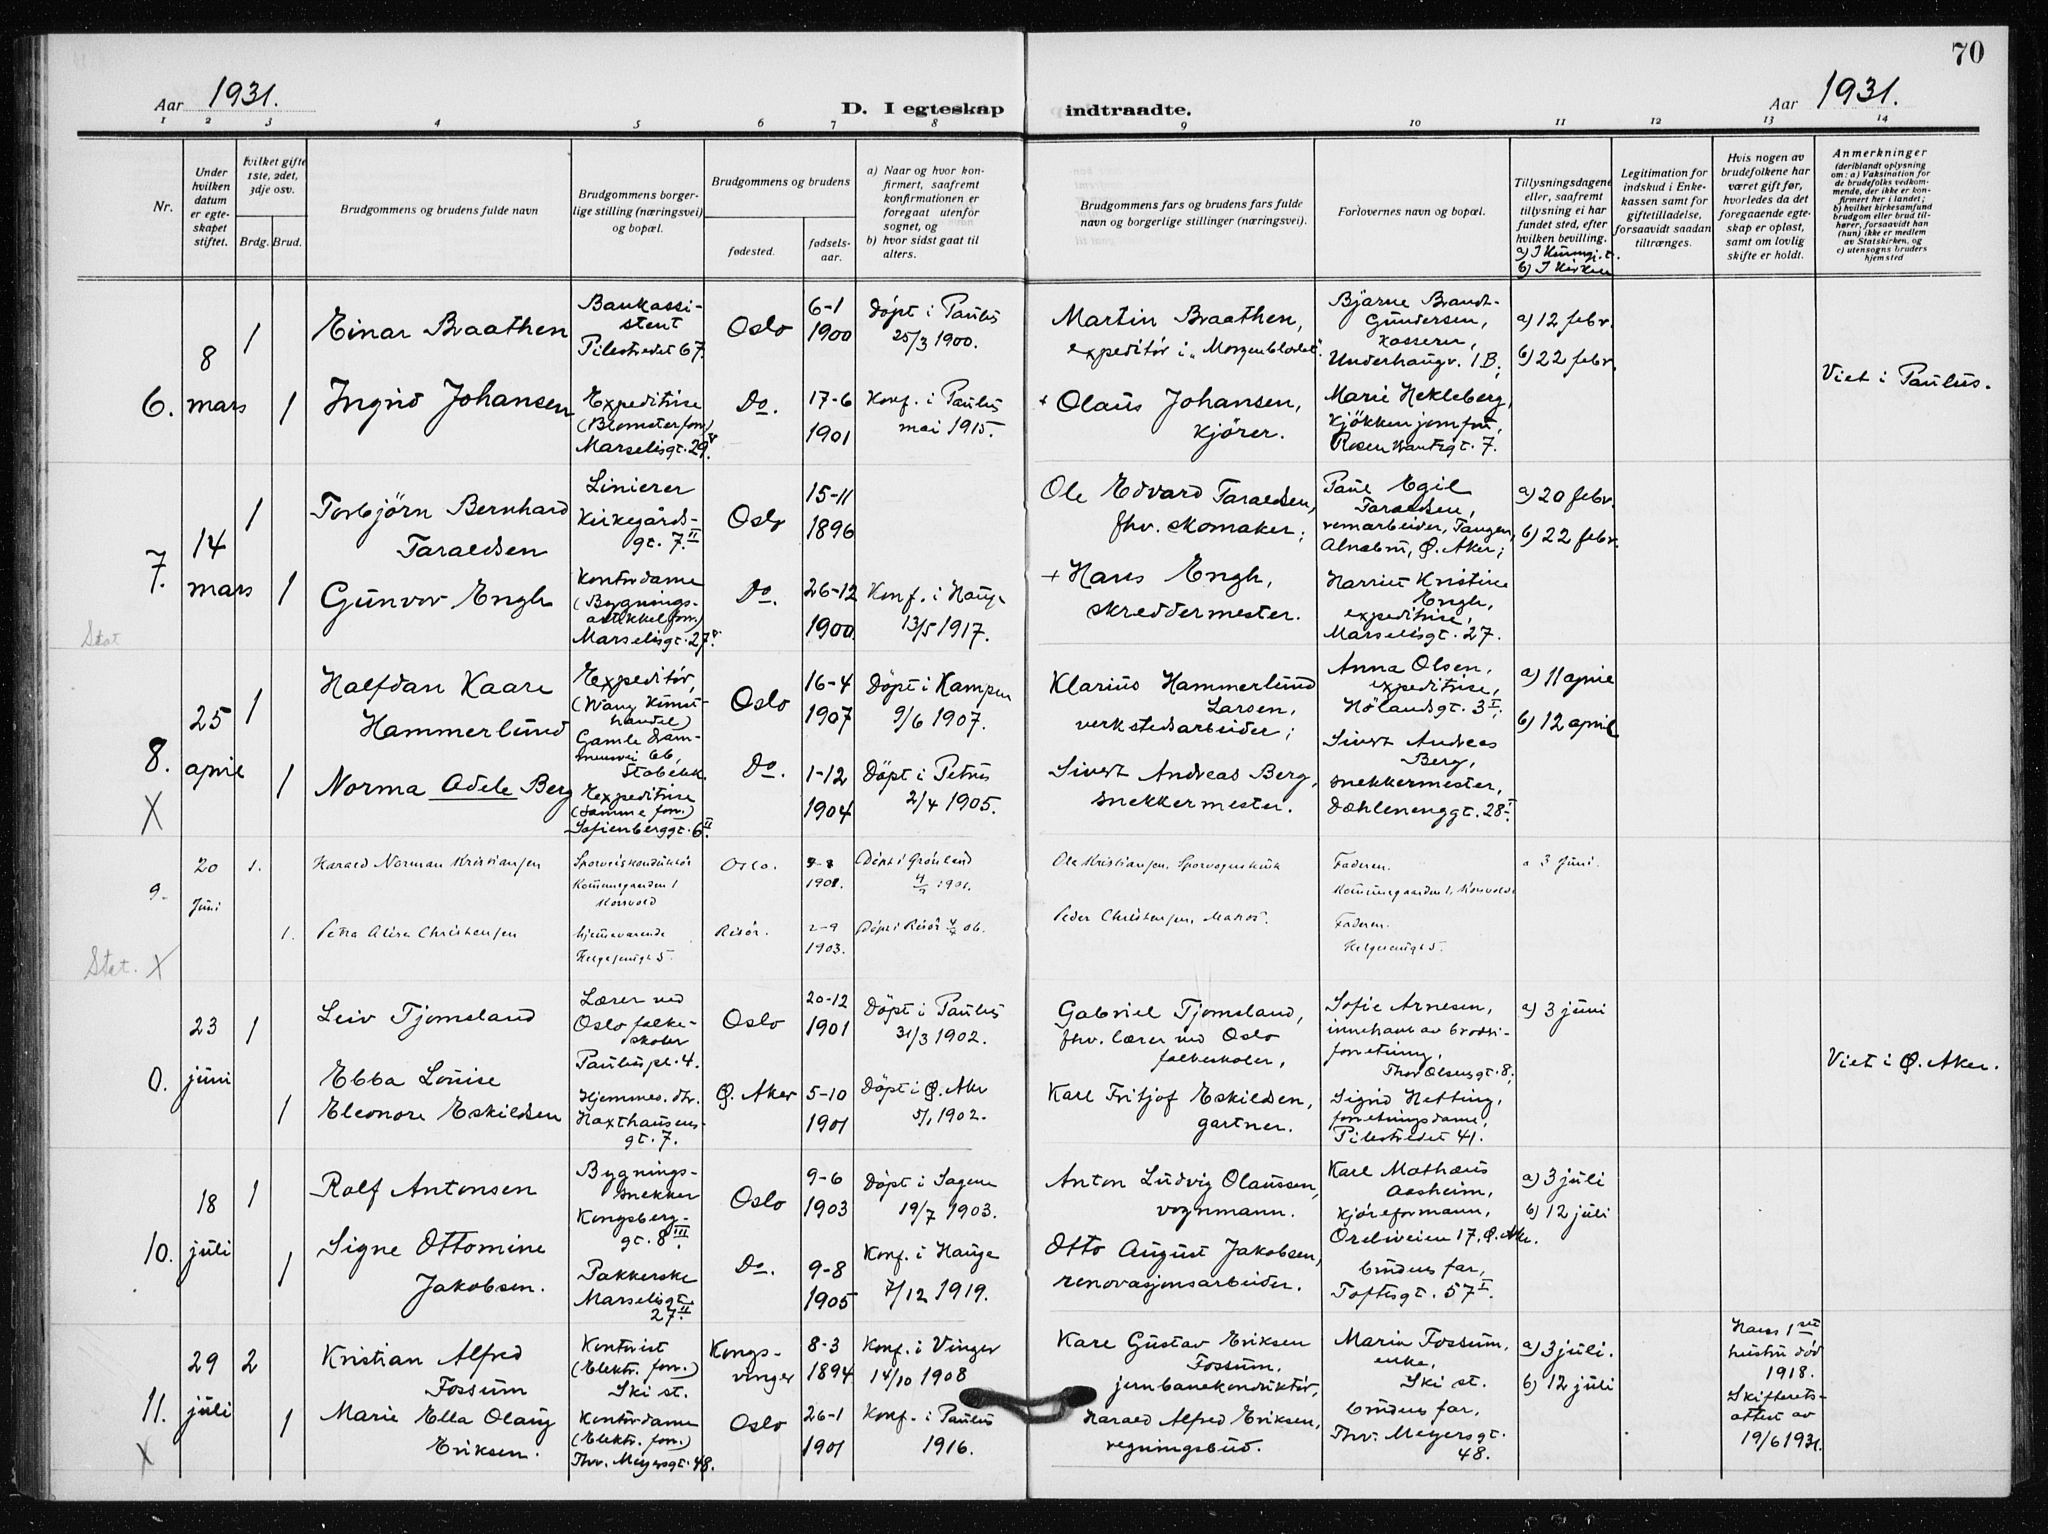 70
Aar 1931.
D. I egteskap indtraadte.
Aar 1931.
1 2 3 4 5 6 7 8 9 10 11 12 13 14
Nr.
Under hvilken datum er egteskapet stiftet.
Hvilket gifte 1ste, 2det, 3dje osv.
Brdg. Brud.
Brudgommens og brudens fulde navn
Brudgommens borgerlige stilling (næringsvei) og bopæl.
Brudgommens og brudens
fødested.
fødselsaar.
a) Naar og hvor konfirmert, saafremt konfirmationen er foregaat utenfor sognet, og
b) hvor sidst gaat til alters.
Brudgommens fars og brudens fars fulde navn og borgerlige stillinger (næringsvei).
Forlovernes navn og bopæl.
Tillysningsdagene eller, saafremt tillysning ei har fundet sted, efter hvilken bevilling.
b) I Kirken
Legitimation for indskud i Enkekassen samt for giftetilladelse, forsaavidt saadan tiltrænges.
Hvis nogen av brudefolkene har været gift før, hvorledes da det foregaaende egteskap er opløst, samt om lovlig skifte er holdt.
Anmerkninger
(deriblandt oplysning om: a) Vaksination for de brudefolks vedkommende, der ikke er konfirmert her i landet; b) hvilket kirkesamfund brudgom eller brud tilhører, forsaavidt han (hun) ikke er medlem av Statskirken, og c) utensogns bruders hjemsted
6. 8 mars
1 Einar Braathen
Bankassistent
Pilestredet 67.
Oslo
6-1 1900
Døpt i Paulus 25/3 1900.
Martin Braathen,
expeditør i „Morgenbladet“.
Bjarne Brandt-Gundersen,
kasserer,
Underhaugv. 1B;
a) 12 febr.
b) 22 febr.
Viet i Paulus.
1 Ingrid Johansen
Expeditrise
(Blomsterforr.)
Marselisgt. 29
Do.
17-6 1901
Konf. i Paulus mai 1915.
+ Olaus Johansen,
kjører.
Marie Hekleberg,
kjøkkenjomfru,
Rosenkrantzgt. 7.
7. 14 mars
1 Torbjörn Bernhard Taraldsen
Linierer
Kirkegårdsgt. 7 II
Oslo
15-11 1896
Ole Edvard Taraldsen,
fhv. skomaker;
Paul Egil Taraldsen,
remarbeider, Tangen,
Alnabru, Ø. Aker;
a) 20 febr.
b) 22 febr.
1 Gunvor Engh
Kontordame
(Bygningsartikkelforr.)
Marselisgt. 27
Do.
26-12 1900
Konf. i Hauge 13/5 1917.
+ Hans Engh,
skreddermester.
Harriet Kristine Engh,
expeditrise,
Marselisgt. 27.
Stat
8. X 25 april
1 Halfdan Kaare Hammerlund
Expeditør,
Gamle Drammensvei 66,
Stabekk.
Oslo
16-4 1907
Døpt i Kampen 9/6 1907.
Klarius Hammerlund Larsen,
verkstedsarbeider;
Anna Olsen,
expeditrise,
Hølandsgt. 3 I;
a) 11 april
b) 12 april
1 Norma Adele Berg
Expeditrise
(Samme forr.)
Sofienberggt. 6 II
Do.
1-12 1904
Døpt i Petrus 2/4 1905.
Sivert Andreas Berg,
snekkermester.
Sivert Andreas Berg,
snekkermester,
Dæhlenenggt. 28 I.
9. 20 Juni
1. Harald Norman Kristiansen
Sporveiskonduktør
Kommunegaarden 1
Korsvold
Oslo.
1901.
Døpt i Grønland
1901.
Ole Kristiansen,
Faderen.
Kommunegaarden 1, Korsvold
a 3 Juni.
1. Petra Alise Christensen
hjemmeværende
Helgesensgt 5.
Risør.
2-9 1903.
Døpt i Risør 06.
Peder Christensen, Matros.
Faderen.
Helgesensgt 5.
Stat. X
0. 23 juni
1 Leiv Tjomsland
Lærer ved Oslo folkeskoler
Paulus pl. 4.
Oslo
20-12 1901
Døpt i Paulus 31/3 1902.
Gabriel Tjomsland,
fhv. lærer ved Oslo folkeskoler,
Sofie Arnesen,
innehaver av broderiforretning,
Thor Olsensgt. 8;
a) 3 juni
Viet i Ø. Aker.
1 Ebba Louise Eleonore Eskildsen
Hjemmev. dtr.
Haxthausensgt. 7.
Ø. Aker
5-10 1901
Døpt i Ø. Aker 5/1 1902.
Karl Fritjof Eskildsen,
gartner.
Sigrid Hetting,
forretningsdame,
Pilestredet 41.
10. 18 juli
1 Rolf Antonsen
Bygningssnekker
Kongsberggt. 8 III
Oslo
9-6 1903
Døpt i Sagene 19/7 1903.
Anton Ludvig Olaussen,
vognmann.
Karl Mathæus Aasheim,
kjøreformann,
Ørebiveien 17, Ø. Aker.
a) 3 juli
b) 12 juli
1 Signe Ottomine Jakobsen.
Pakkerske
Marselisgt. 27 II
Do.
9-8 1905
Konf. i Hauge 7/12 1919.
Otto August Jakobsen,
renovasjonsarbeider.
brudens far,
Toftesgt. 57 I.
11. X 29 juli
2 Kristian Alfred Fossum
Kontorist
(Elektr. forr.)
Ski st.
Kongsvinger
8-3 1894
Konf. i Vinger 14/10 1908
Karl Gustav Eriksen Fossum,
jernbanekonduktør,
Maria Fossum,
enke,
Ski st.
a) 3 juli.
b) 12 juli
Hans 1ste hustru død 1918.
Skifteretsattest av 19/6 1931.
1 Marie Ella Olaug Eriksen.
Kontordame
(Elektr. forr.)
Thv. Meyersgt. 48.
Oslo
26-1 1901
Konf. i Paulus 1916.
Harald Alfred Eriksen,
regningsbud.
brudens far,
Thv. Meyersgt. 48.